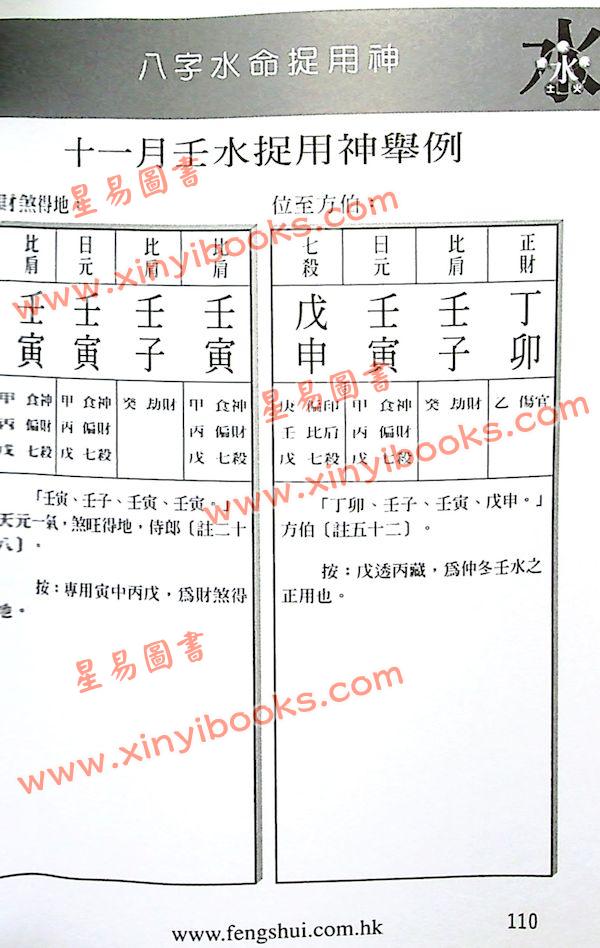 八字水命捉用神
水
水
土 火
十一月壬水捉用神舉例
位至方伯：
正財 比肩 日元 七殺
丁 壬 壬 戊
卯 子 寅 申
乙 傷官 癸 劫財 甲 食神 庚 偏印
丙 偏財 壬 比肩
戊 七殺 戊 七殺
「丁卯、壬子、壬寅、戊申。」
方伯〔註五十二〕。
按：戊透丙藏，爲仲冬壬水之
正用也。
財煞得地：
比肩 比肩 日元 比肩
壬 壬 壬 壬
寅 子 寅 寅
甲 食神 癸 劫財 甲 食神 甲 食神
丙 偏財 丙 偏財 丙 偏財
戊 七殺 戊 七殺 戊 七殺
「壬寅、壬子、壬寅、壬寅。」
天元一氣，煞旺得地，侍郎〔註二十
八〕。
按：專用寅中丙戊，爲財煞得
地。
星易圖書
www.xinyibooks.com
星易圖書
www.xinyibooks.com
星易圖書
www.xinyibooks.com
www.fengshui.com.hk
110